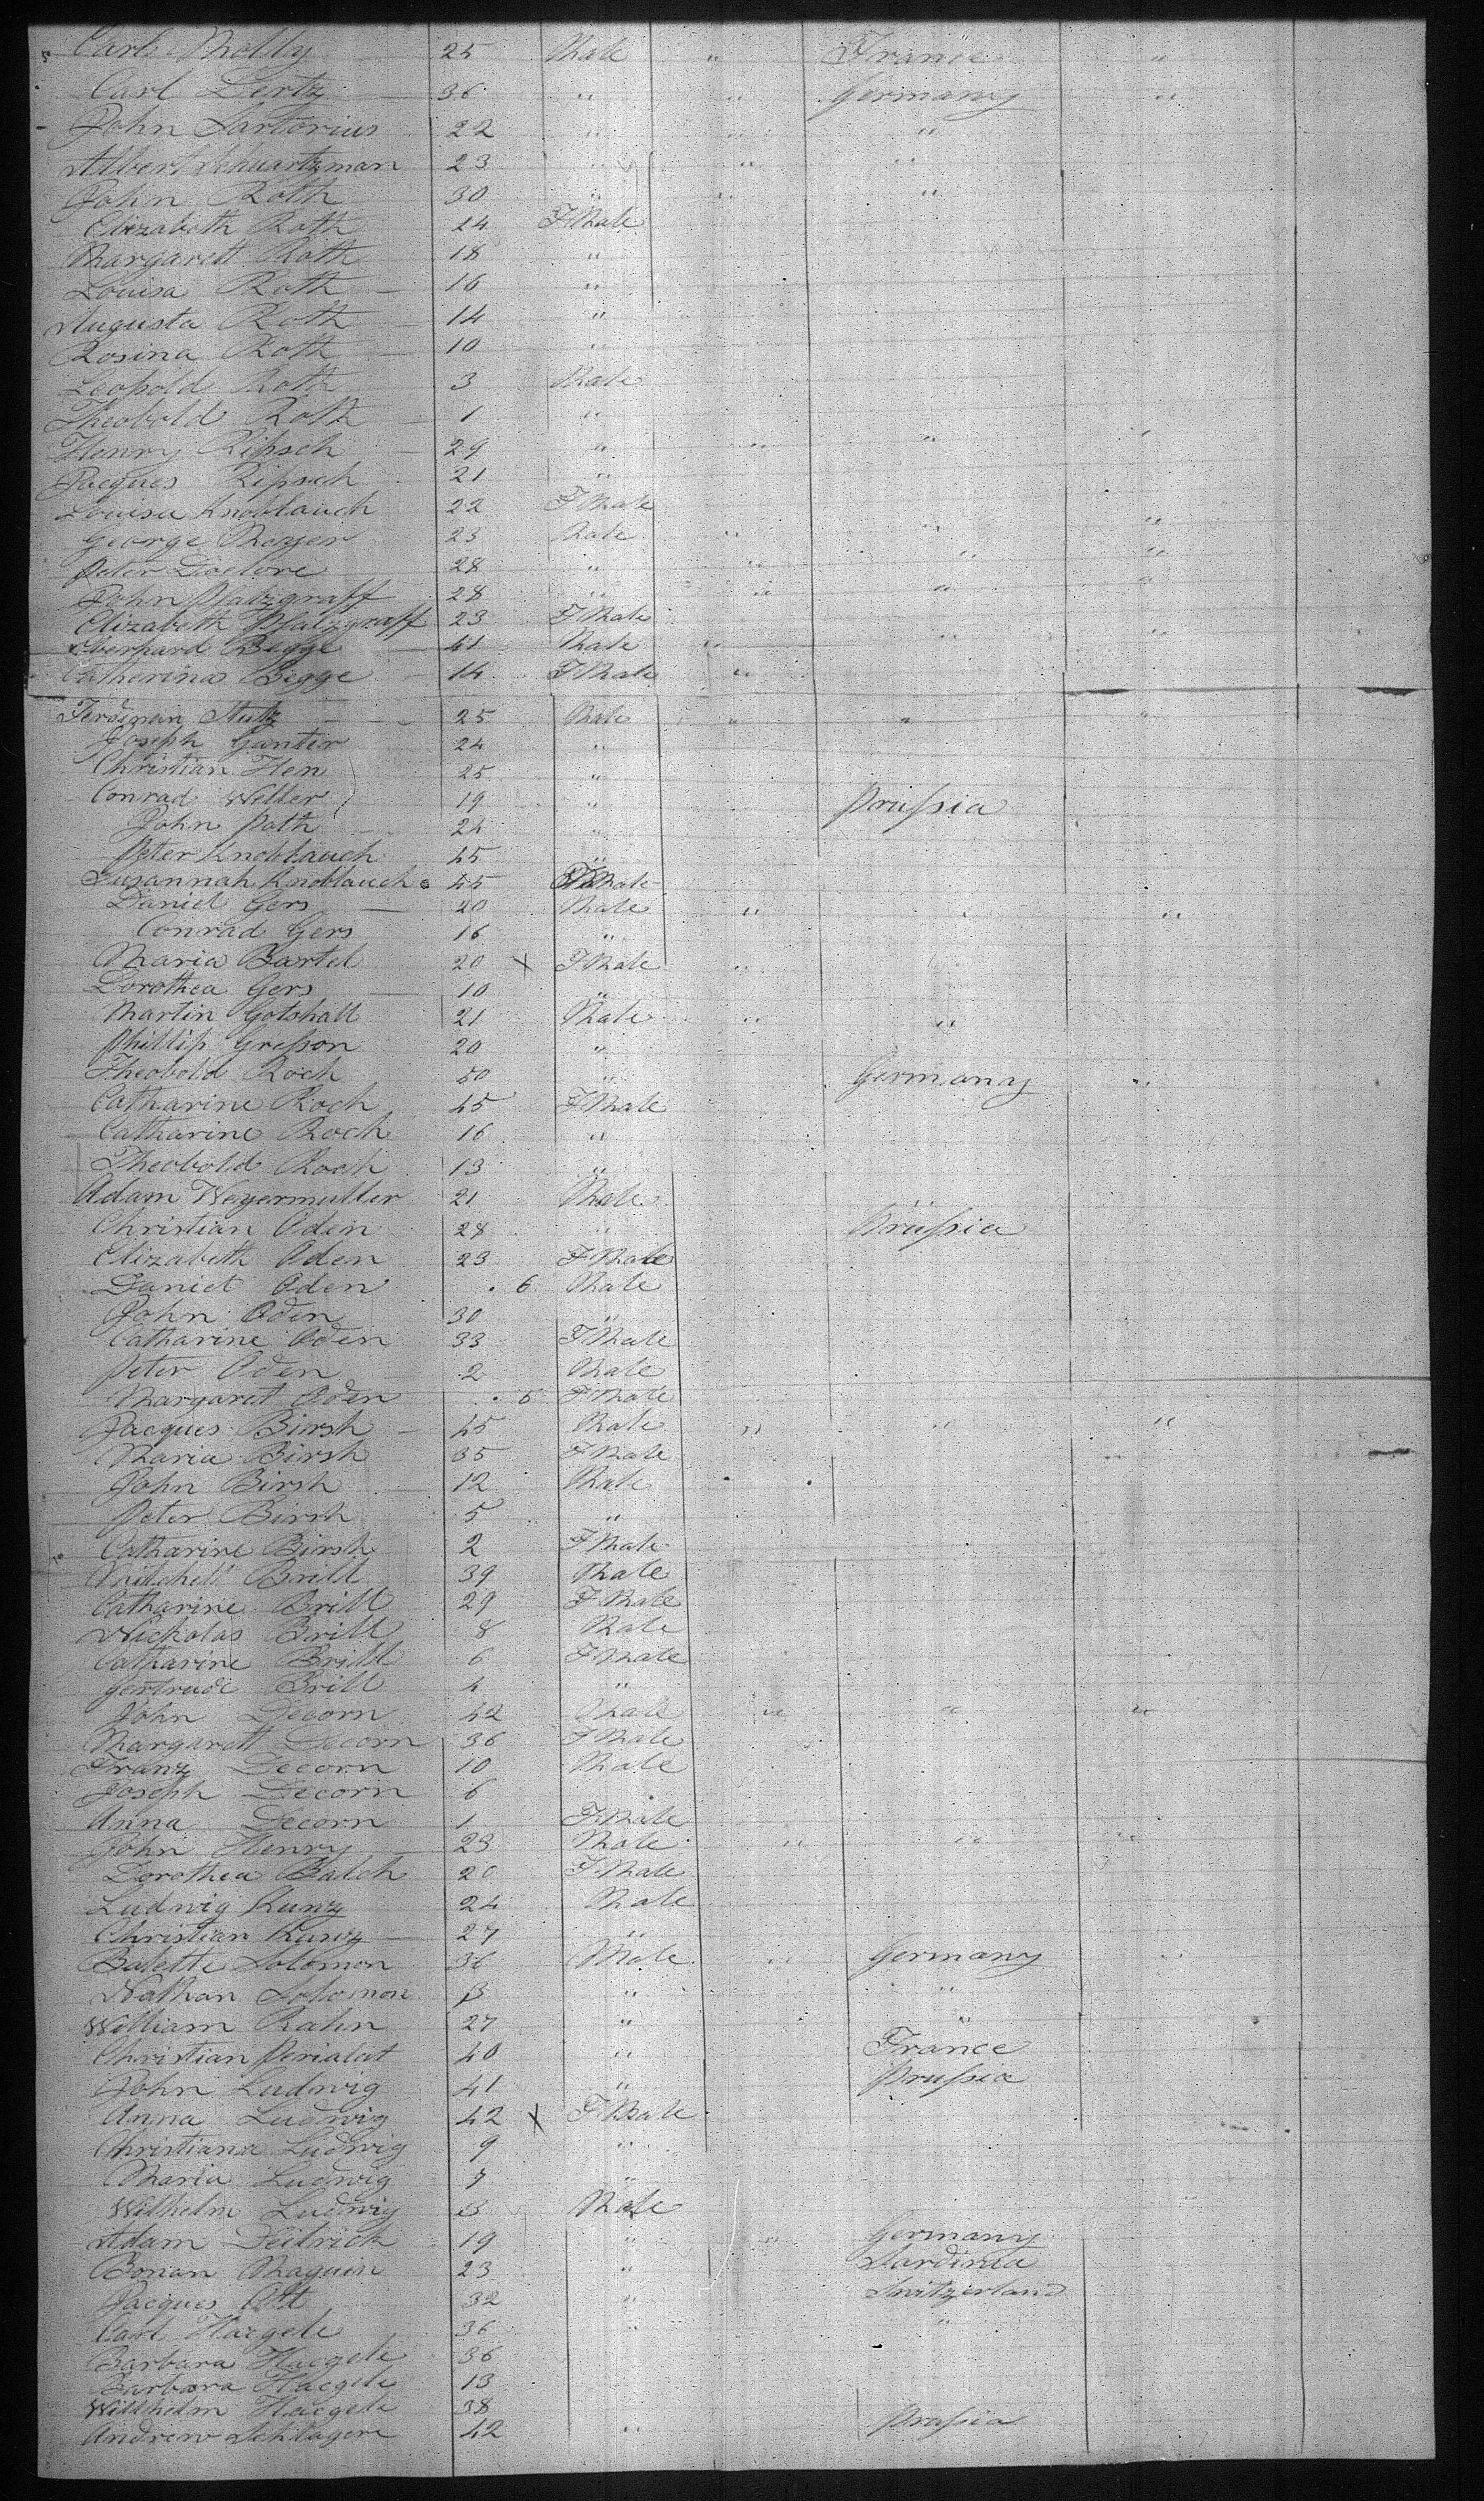 Carl Molly 25 Male " France "
Carl Lertz 36 " " Germany "
John Sartorius 22 " " "
Albert Schwartzman 23 " " "
John Roth 30 " " "
Elizabeth Roth 24 F Male
Margarett Roth 18 "
Louisa Roth 16 "
Augusta Roth 14 "
Rosina Roth 10 "
Leopold Roth 3 Male
Theobold Roth 1 "
Henry Ripsch 29 " " " "
Jacques Ripsch 21 "
Louisa Knoblauch 22 F Male
George Mayer 23 Male " " "
Peter Doelore 28 " " " "
John Pfalzgraff 28 " " " "
Elizabeth Pfalzgraff 23 F Male
Eberhard Begge 41 Male " " "
Catherina Begge 14 F Male "
Ferdinan Stutz 25 Male " " "
Joseph Ganter 24 "
Christian Hen 25 "
Conrad Weller 19 " Prussia
John Poth 24 "
Peter Knoblauch 45 "
Susannah Knoblauch 45 F Male
Daniel Gers 20 Male " " "
Conrad Gers 16 "
Maria Bartel 20 x F Male "
Dorothea Gers 10 "
Martin Gotshall 21 Male " "
Phillip Gresson 20 "
Theobold Roch 50 " Germany "
Catharine Roch 45 F Male
Catharine Roch 16 "
Theobold Roch 13 "
Adam Weyermuller 21 Male
Christian Oden 28 " Prussia
Elizabeth Oden 23 F Male
Daniel Oden . 6 Male
John Oden 30 "
Catharine Oden 33 F Male
Peter Oden 2 Male
Margaret Oden . 5 F Male
Jacques Birsh 45 Male " " "
Maria Birsh 35 F Male
John Birsh 12 Male
Peter Birsh 5 "
Catharine Birsh 2 F Male
Mitchell Brill 39 Male
Catharine Brill 29 F Male
Nickolas Brill 8 Male
Catharine Brill 6 F Male
Gertrude Brill 4 "
John Decorn 42 Male " " "
Margarett Decorn 36 F Male
Franz Decorn 10 Male
Joseph Decorn 6 "
Anna Decorn 1 F Male
John Henry 23 Male " " "
Dorothea Balch 20 F Male
Ludwig Kunz 24 Male
Christian Kunz 27 "
Babette Solomon 36 Male " Germany "
Nathan Solomon 3 " "
William Rahn 27 " "
Christian Perialat 40 " France
John Ludwig 41 " Prussia
Anna Ludwig 42 x F Male
Christiana Ludwig 9 "
Maria Ludwig 7 "
Wilhelm Ludwig 3 Male
Adam Deitrich 19 " " Germany
Bonan Maguin 23 " Sardinia
Jacques Ott 32 " Switzerland
Carl Haegele 36 " "
Barbara Haegele 36
Barbara Haegele 13
Willhelm Haegele 38
Andrew Schlagere 42 " Prussia